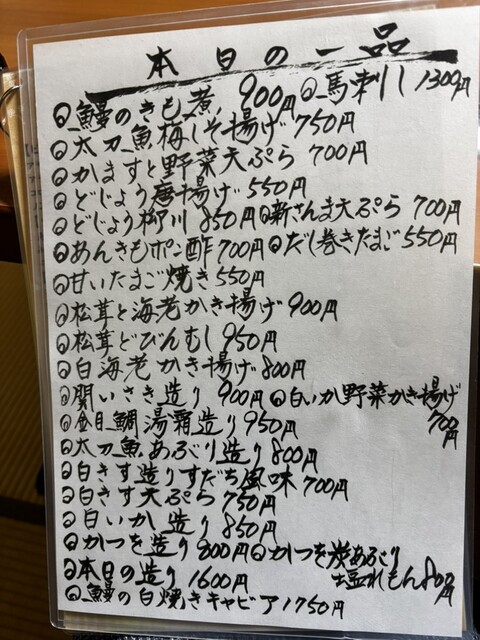 本日の一品
鰻のきも煮 900円 馬刺し 1300円
太刀魚梅しそ揚げ 750円
かますと野菜天ぷら 700円
どじょう唐揚げ 550円
どじょう柳川 850円 新さんま天ぷら 700円
あんきもポン酢 700円 だし巻きたまご 550円
甘いたまご焼き 550円
松茸と海老かき揚げ 900円
松茸どびんむし 950円
白海老かき揚げ 800円
いさき造り 900円 白いか野菜かき揚げ
700円
鯛湯霜造り 950円
太刀魚あぶり造り 800円
白きす造りすだち風味 700円
白きす天ぷら 750円
白いか造り 850円
かつを造り 800円 かつを炭あぶり
塩れもん 800円
本日の造り 1600円
鰻の白焼きキャビア 1750円